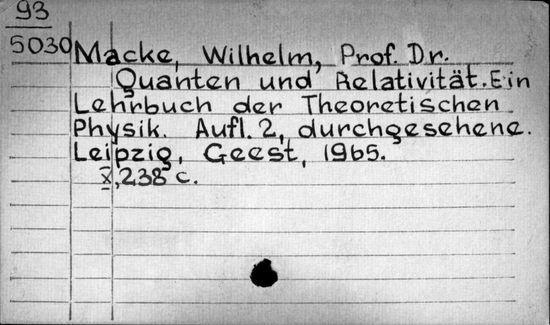 93
5030 Macke, Wilhelm, Prof. Dr.
Quanten und Relativität. Ein
Lehrbuch der Theoretischen
Physik. Aufl. 2, durchgesehene.
Leipzig, Geest, 1965.
X, 238 c.